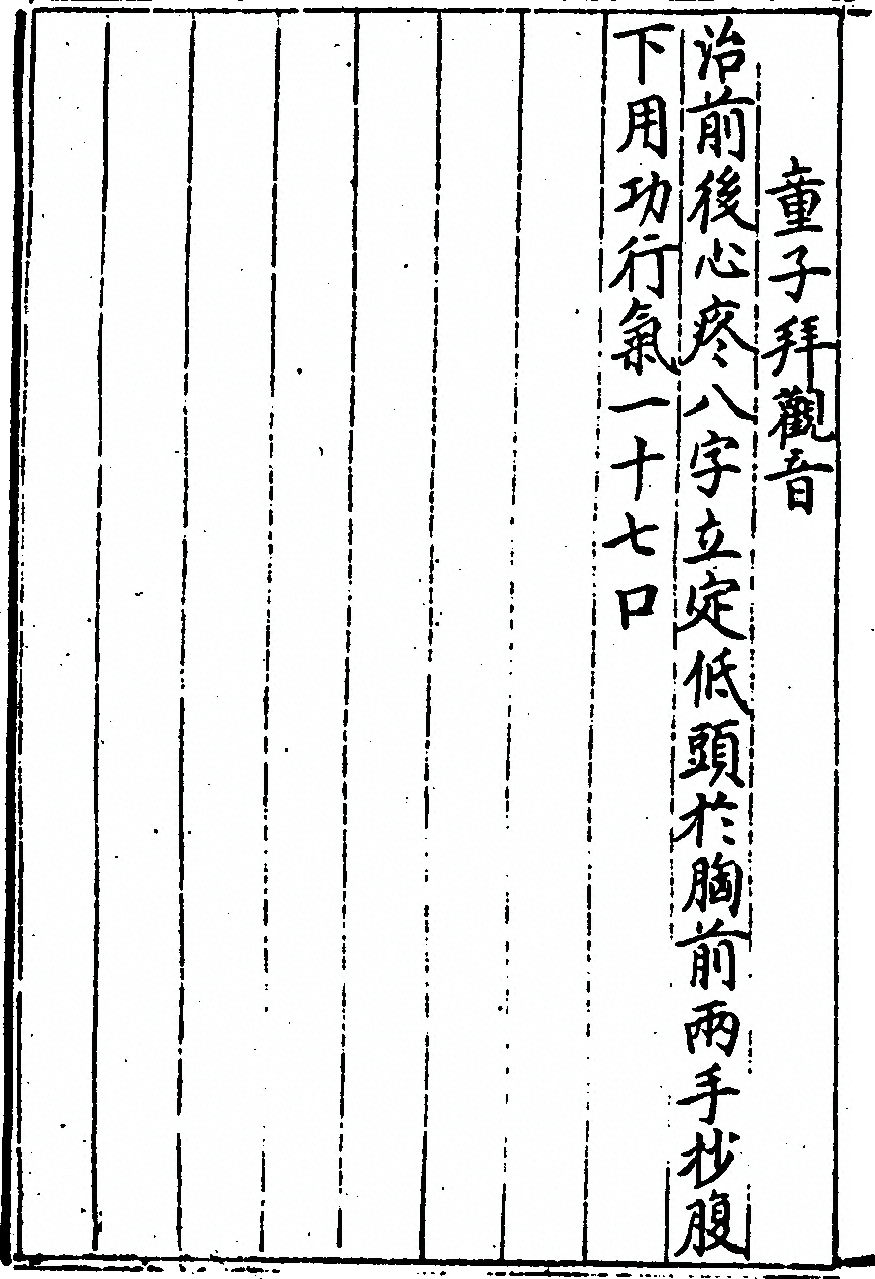 童子拜觀音
治前後心疼八字立定低頭於胸前兩手抄腹
下用功行氣一十七口